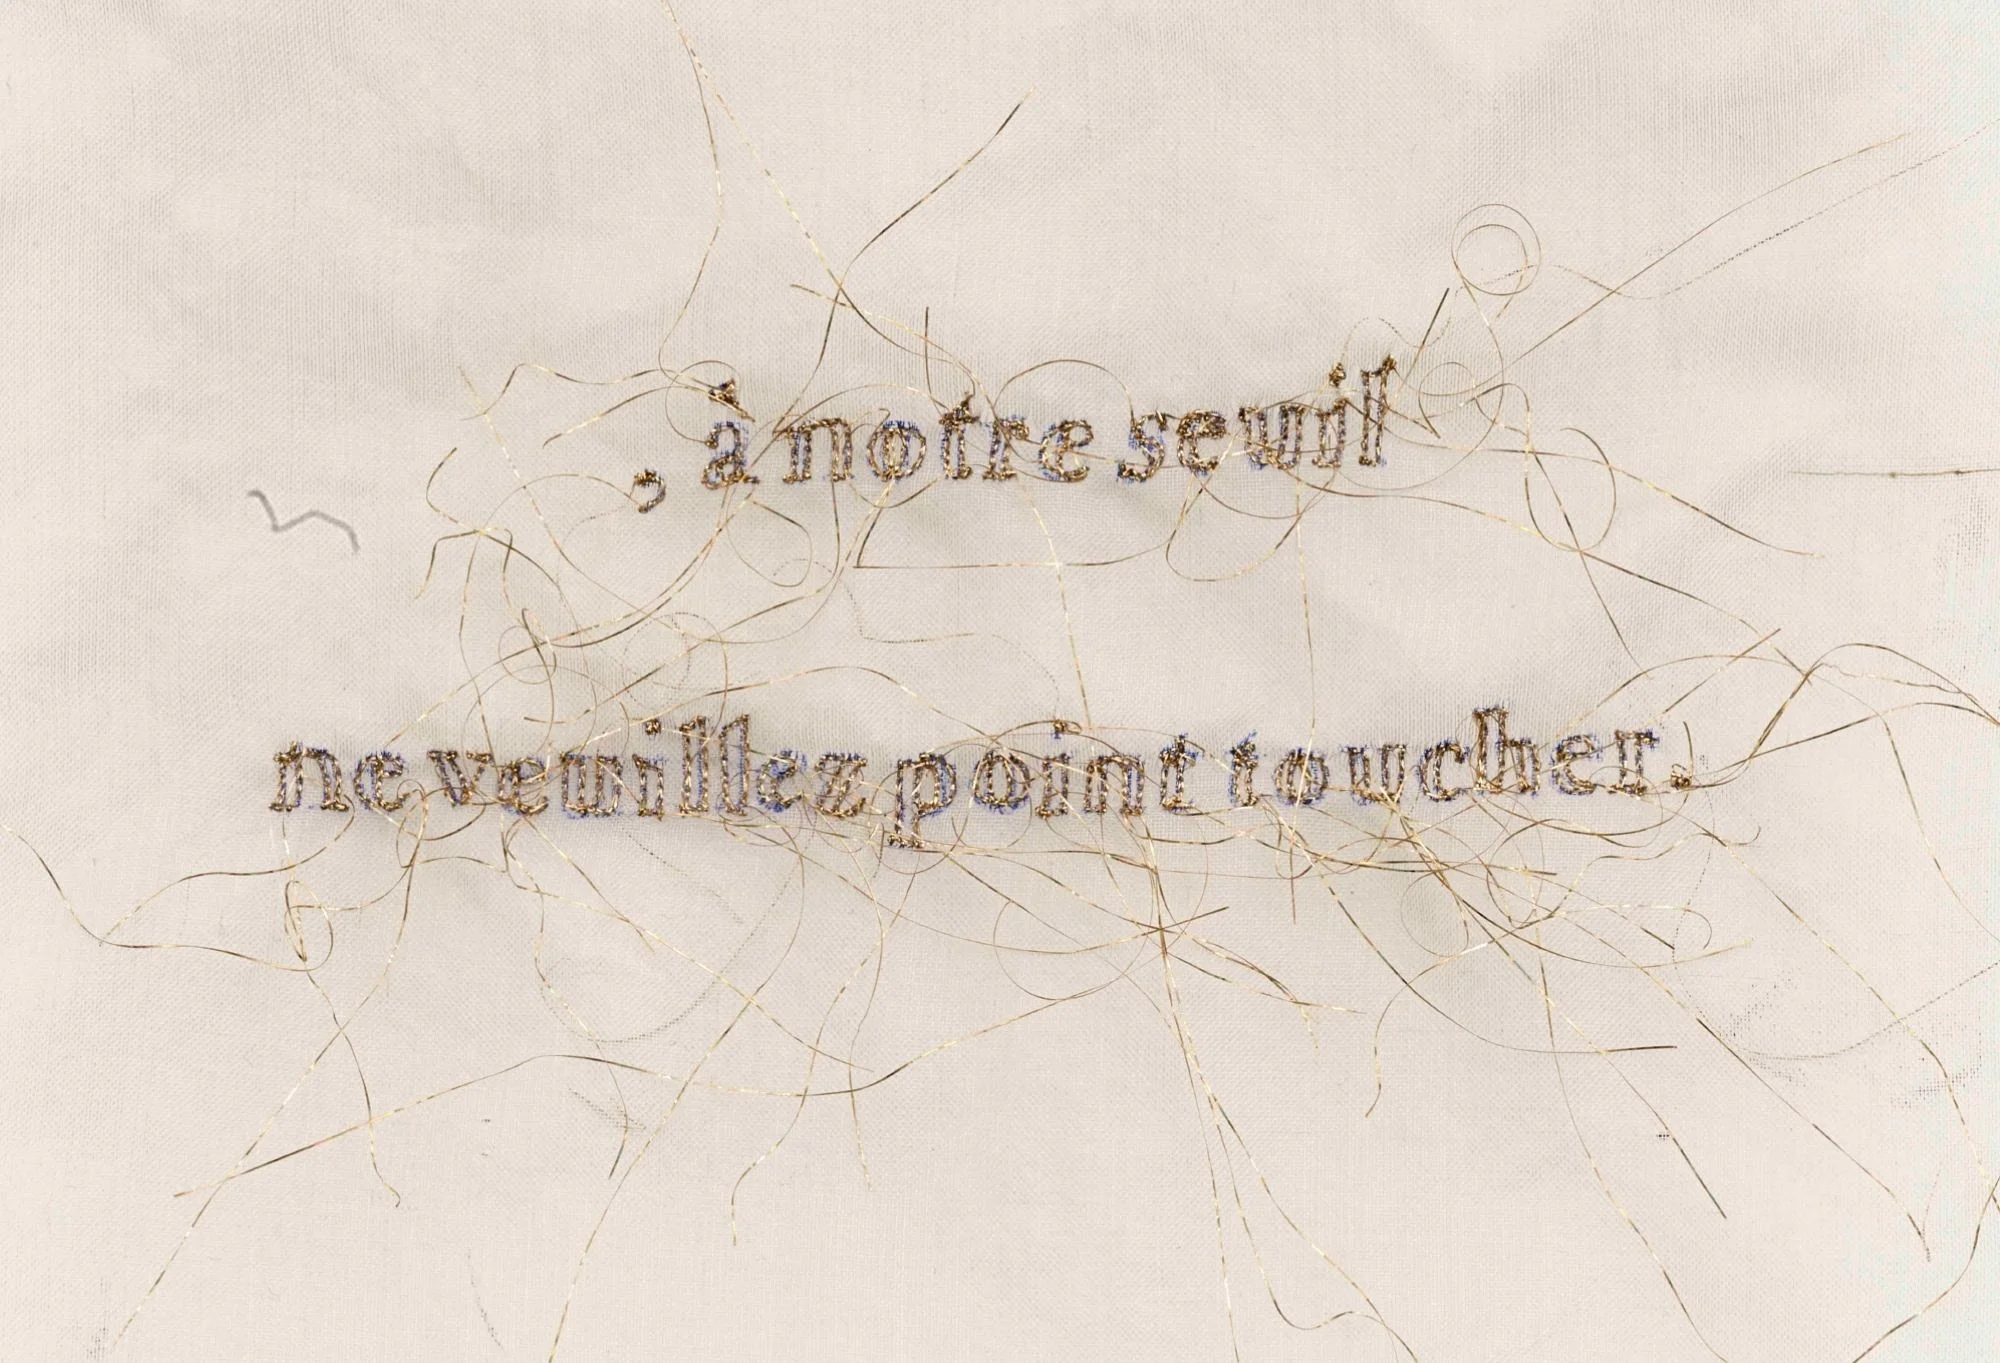 , à notre seuil
ne veuillez point toucher.